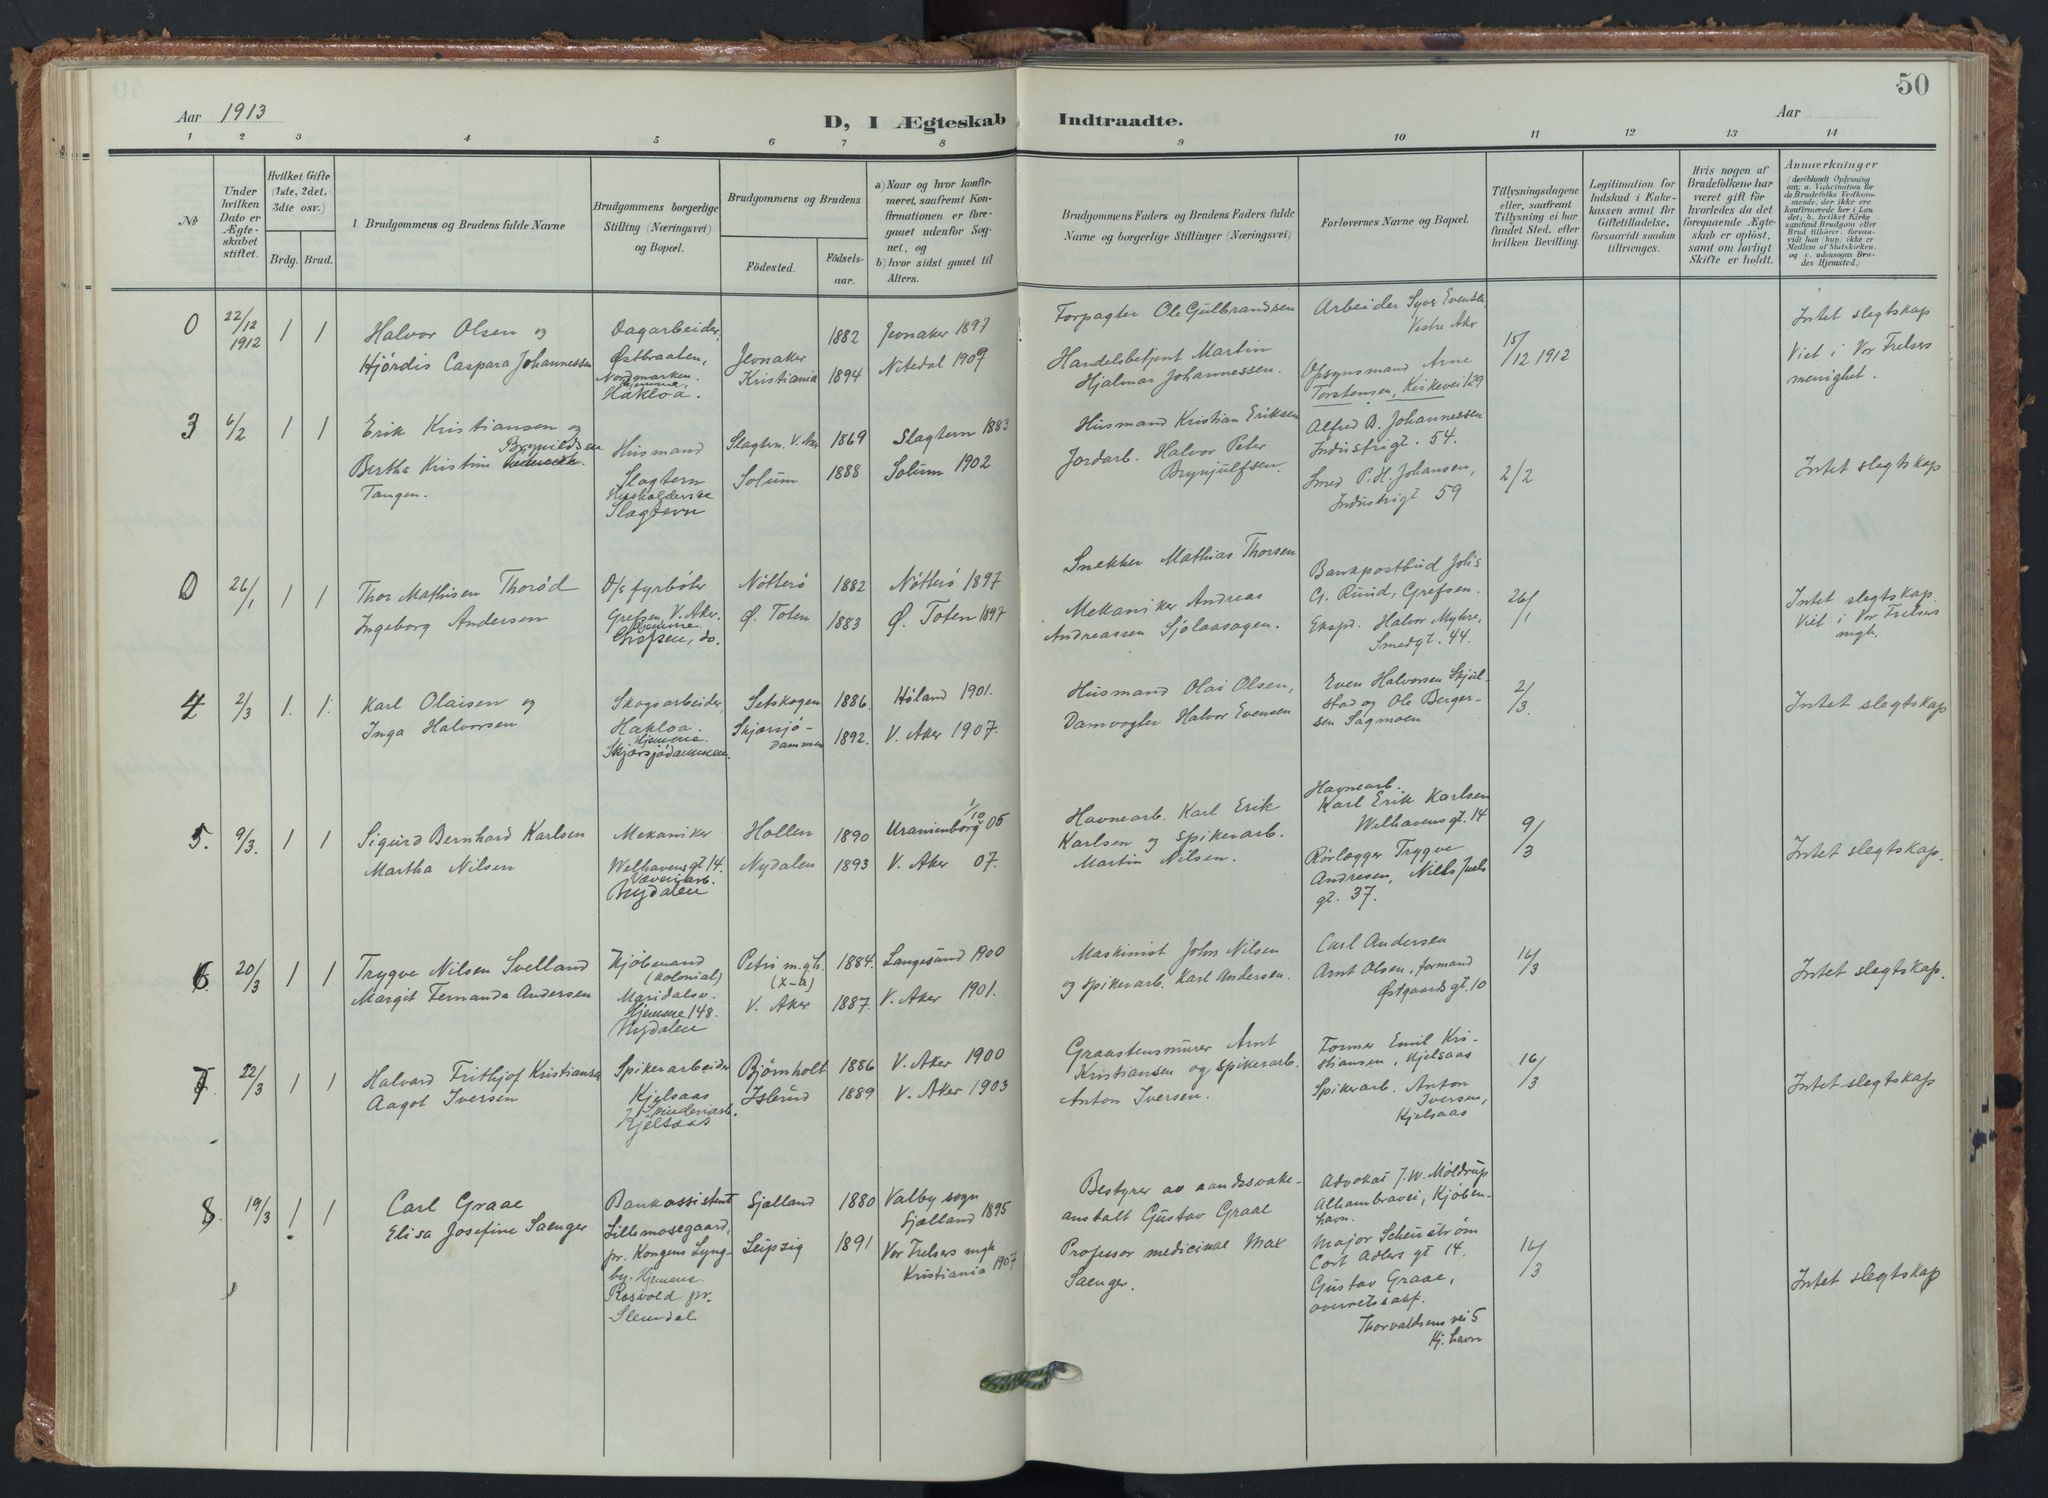 50
Aar 1913
D, I Ægteskab Indtraadte.
Aar
1 2 3 4 5 6 7 8 9 10 11 12 13 14
№
Under hvilken Dato er Ægteskabet stiftet.
Hvilket Gifte (1ste, 2det, 3die osv.)
Brdg. Brud.
Brudgommens og Brudens fulde Navne
Brudgommens borgerlige Stilling (Næringsvei) og Bopæl.
Brudgommens og Brudens
Födested.
Födselsaar.
a) Naar og hvor konfirmeret, saafremt Konfirmationen er foregaaet udenfor Sognet, og
b) hvor sidst gaaet til Alters.
Brudgommens Faders og Brudens Faders fulde Navne og borgerlige Stillinger (Næringsvei)
Forlovernes Navne og Bopæl.
Tillysningsdagene eller, saafremt Tillysning ei har fundet Sted, efter hvilken Bevilling.
Legitimation for Indskud i Enkekassen samt for Giftetilladelse, forsaavidt saadan tiltrænges.
Hvis nogen af Brudefolkene har været gift før hvorledes da det foregaaende Ægteskab er opløst, samt om lovligt Skifte er holdt.
Anmærkninger
(deriblandt Oplysning om: a. Vakcination for de Brudefolks Vedkommende, der ikke ere konfirmerede her i Landet; b. hvilket Kirkesamfund Brudgom eller Brud tilhører, forsaavidt han (hun) ikke er Medlem af Statskirken og c. udensogns Brudes Hjemsted.)
0 22/12 1912 1 1
Halvor Olsen og
Hjördis Caspara Johannessen
Dagarbeider,
Østbraaten,
Nordmarken.
Hjemme,
Hakloa.
Jevnaker 1882
Kristiania 1894
Jevnaker 1897
Nitedal 1909
Forpagter Ole Gulbrandsen
Handelsbetjent Martin
Hjalmar Johannessen.
Arbeider Syver Evensen,
Vestre Aker
Opsynsmand Arne
Torstensen, Kirkevei 129
15/12 1912
Intet slegtskap
Viet i Vor Frelsers
menighet.
3 6/2 1 1
Erik Kristiansen og
Brynildsen
Bertha Kristine
Tangen.
Husmand
Slagtern
Husholderske
Slagtern
Slagtern. V. Aker 1869
Solum 1888
Slagtern 1883
Solum 1902
Husmand Kristian Eriksen
Jordarb. Halvor Peter
Brynjulfsen.
Alfred B. Johannessen
Industrigt. 54.
Smed P. H. Johansen,
Industrigt 59
2/2
Intet slegtskap
0 26/1 1 1
Thor Mathisen Thoröd
Ingeborg Andersen
O/s fyrböter
Grefsen, V. Aker.
Hjemme
Grefsen, do.
Nötterö 1882
Ø. Toten 1883
Nötterö 1897
Ø. Toten 1897
Snekker Mathias Thorsen
Mekaniker Andreas
Andreassen Sjölaasagen.
Bankpostbud Johs
G. Ruud, Grefsen.
Eksp. Halvor Myhre,
Smedgt. 44.
26/1
Intet slegtskap.
Viet i Vor Frelsers
mgh.
4 2/3 1. 1.
Karl Olaisen og
Inga Halvorsen
Skogsarbeider,
Hakloa.
Hjemme
Skjærsjödammen.
Setskogen 1886.
Skjærsjödammen 1892.
Höland 1901.
V. Aker 1907.
Husmand Olai Olsen,
Damvogter Halvor Evensen
Even Halvorsen Skjulstad
og Ole Bergersen
Sagmoen
2/3
Intet slegtskap
5. 9/3. 1 1
Sigurd Bernhard Karlsen
Martha Nilsen
Mekaniker
Welhavensgt. 14.
Væveriarb.
Nydalen
Hollen 1890
Nydalen 1893
1/10
Uranienborg 05
V. Aker 07.
Havnearb. Karl Erik
Karlsen og Spikerarb.
Martin Nilsen.
Havnearb.
Karl Erik Karlsen
Welhavensgt. 14
Rörlægger Trygve
Andresen, Niels Juels
gt. 37.
9/3
Intet slegtskap.
6. 20/3 1 1
Trygve Nilsen Svelland
Margit Fernanda Andersen
Kjöbmand
(kolonial)
Maridalsv.
Hjemme 148.
Nydalen
Petri mgh.
(X-a) 1884.
V. Aker 1887.
Langesund 1900
V. Aker 1901.
Maskinist John Nilsen
og spikerarb. Karl Andersen.
Carl Andersen
Arnt Olsen, formand
Østgaardsgt. 10
16/3
Intet slegtskap.
7 22/3 1 1
Halvard Frithjof Kristiansen
Aagot Iversen
Spikerarbeider
Kjelsaas
Kjelsaas
Björnholt 1886
Islund 1889
V. Aker 1900
V. Aker 1903
Graastensmurer Arnt
Kristiansen og Spikerarb.
Anton Iversen.
Former Emil Kristiansen,
Kjelsaas
Spikerarb. Anton
Iversen,
Kjelsaas
16/3
Intet slegtskap
8. 19/3 1 1
Carl Graae
Elisa Josefine Saenger
Bankassistent
Lillemosegaard,
pr. Kongens Lyngby.
Hjemme
Rosvold pr.
Slemdal
Sjælland 1880
Leipzig 1891
Valby sogn
Sjælland 1895
Vor Frelsers mgh
Kristiania 1907
Bestyrer av aandssvakeanstalt
Gustav Graae
Professor medicinae Max
Saenger.
Advokat J. W. Möldrup
Alhambravei, Kjöbenhavn.
Major Scheuström
Cort Adlers gt 14.
Gustav Graae,
overretssakf.
Thorvaldsensvei 5
Kj.havn
16/3
Intet slegtskap